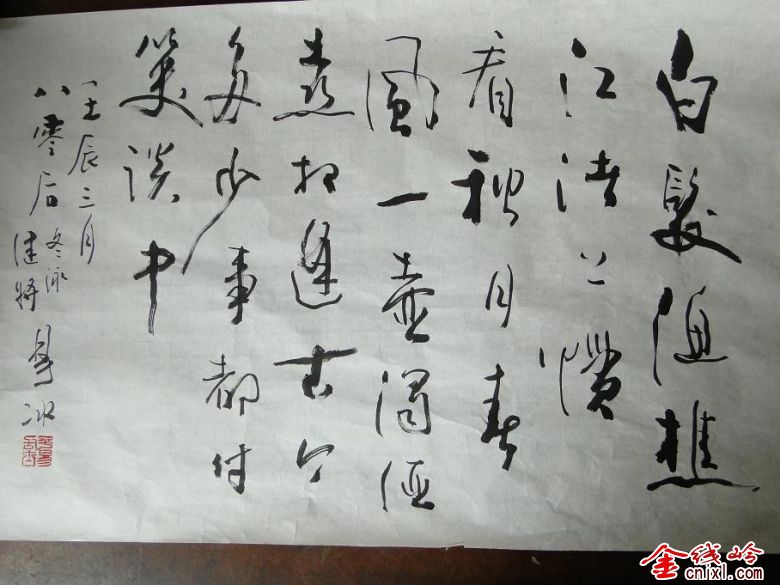 白髮渔樵
江渚上慣
看秋月春
風一壺濁酒
喜相逢古今
多少事都付
笑談中
壬辰三月
八零后冬泳健将
金线岭
cnlxl.com